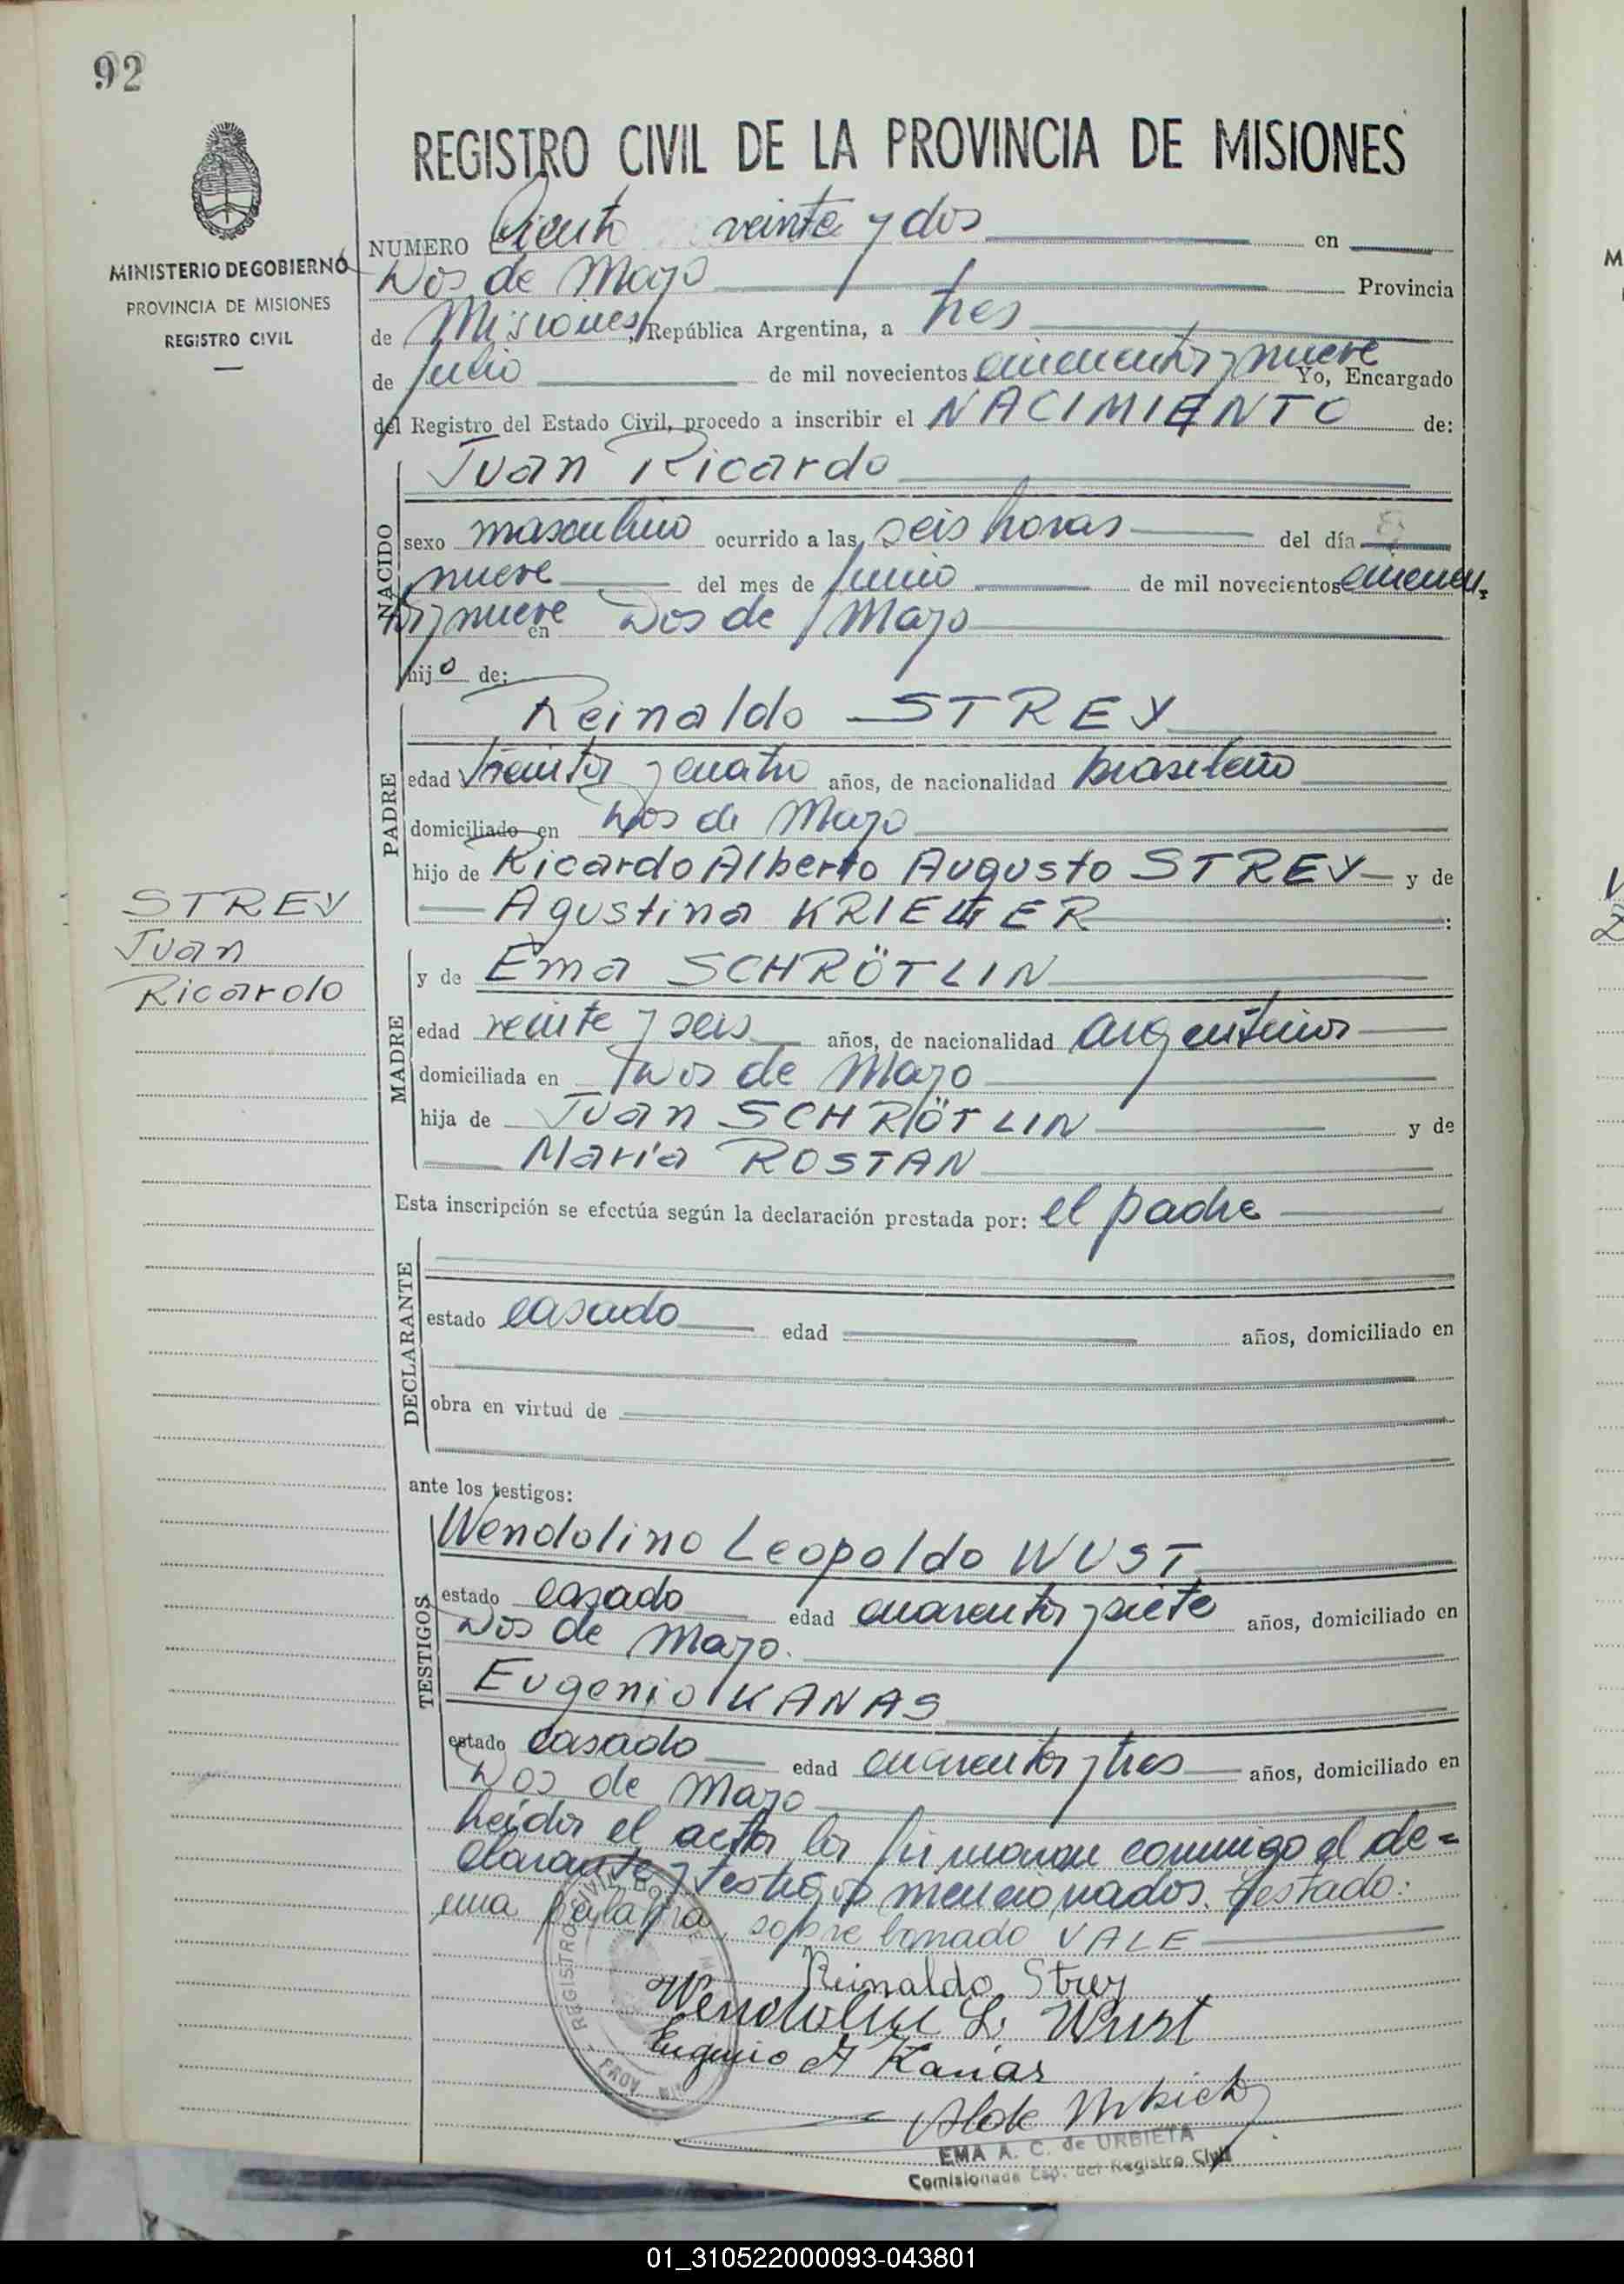 92
REGISTRO CIVIL DE LA PROVINCIA DE MISIONES
MINISTERIO DE GOBIERNO
PROVINCIA DE MISIONES
REGISTRO CIVIL
NUMERO Ciento veinte y dos en
Dos de Mayo Provincia
de Misiones, República Argentina, a tres
de Julio de mil novecientos cincuenta y nueve Yo, Encargado
del Registro del Estado Civil, procedo a inscribir el NACIMIENTO de:
NACIDO
Juan Ricardo
sexo masculino ocurrido a las seis horas del día
nueve del mes de Junio de mil novecientos cincuen
ta y nueve en Dos de Mayo
hijo de:
PADRE
Reinaldo STREY
edad treinta y cuatro años, de nacionalidad brasileño
domiciliado en Dos de Mayo
hijo de Ricardo Alberto Augusto STREY y de
Agustina
STREY
Juan
Ricardo
MADRE
y de Ema SCHRÖTLIN
edad veinte y seis años, de nacionalidad argentina
domiciliada en Dos de Mayo
hija de Juan SCHRÖTLIN y de
María ROSTAN
Esta inscripción se efectúa según la declaración prestada por: el padre
DECLARANTE
estado casado edad años, domiciliado en
obra en virtud de
ante los testigos:
TESTIGOS
Wendolino Leopoldo WUST
estado casado edad cuarenta y siete años, domiciliado en
Dos de Mayo.
Eugenio KANAS
estado casado edad cuarenta y tres años, domiciliado en
Dos de Mayo
Leída el acta la firmaron conmigo el de=
clarante y testigos mencionados. Testado:
una palabra, sobre borrado VALE
Reinaldo Strey
Wendolino L. Wust
Eugenio Kanas
EMA A. C. de URBIETA
Comisionada Esp. del Registro Civil
01_310522000093-043801